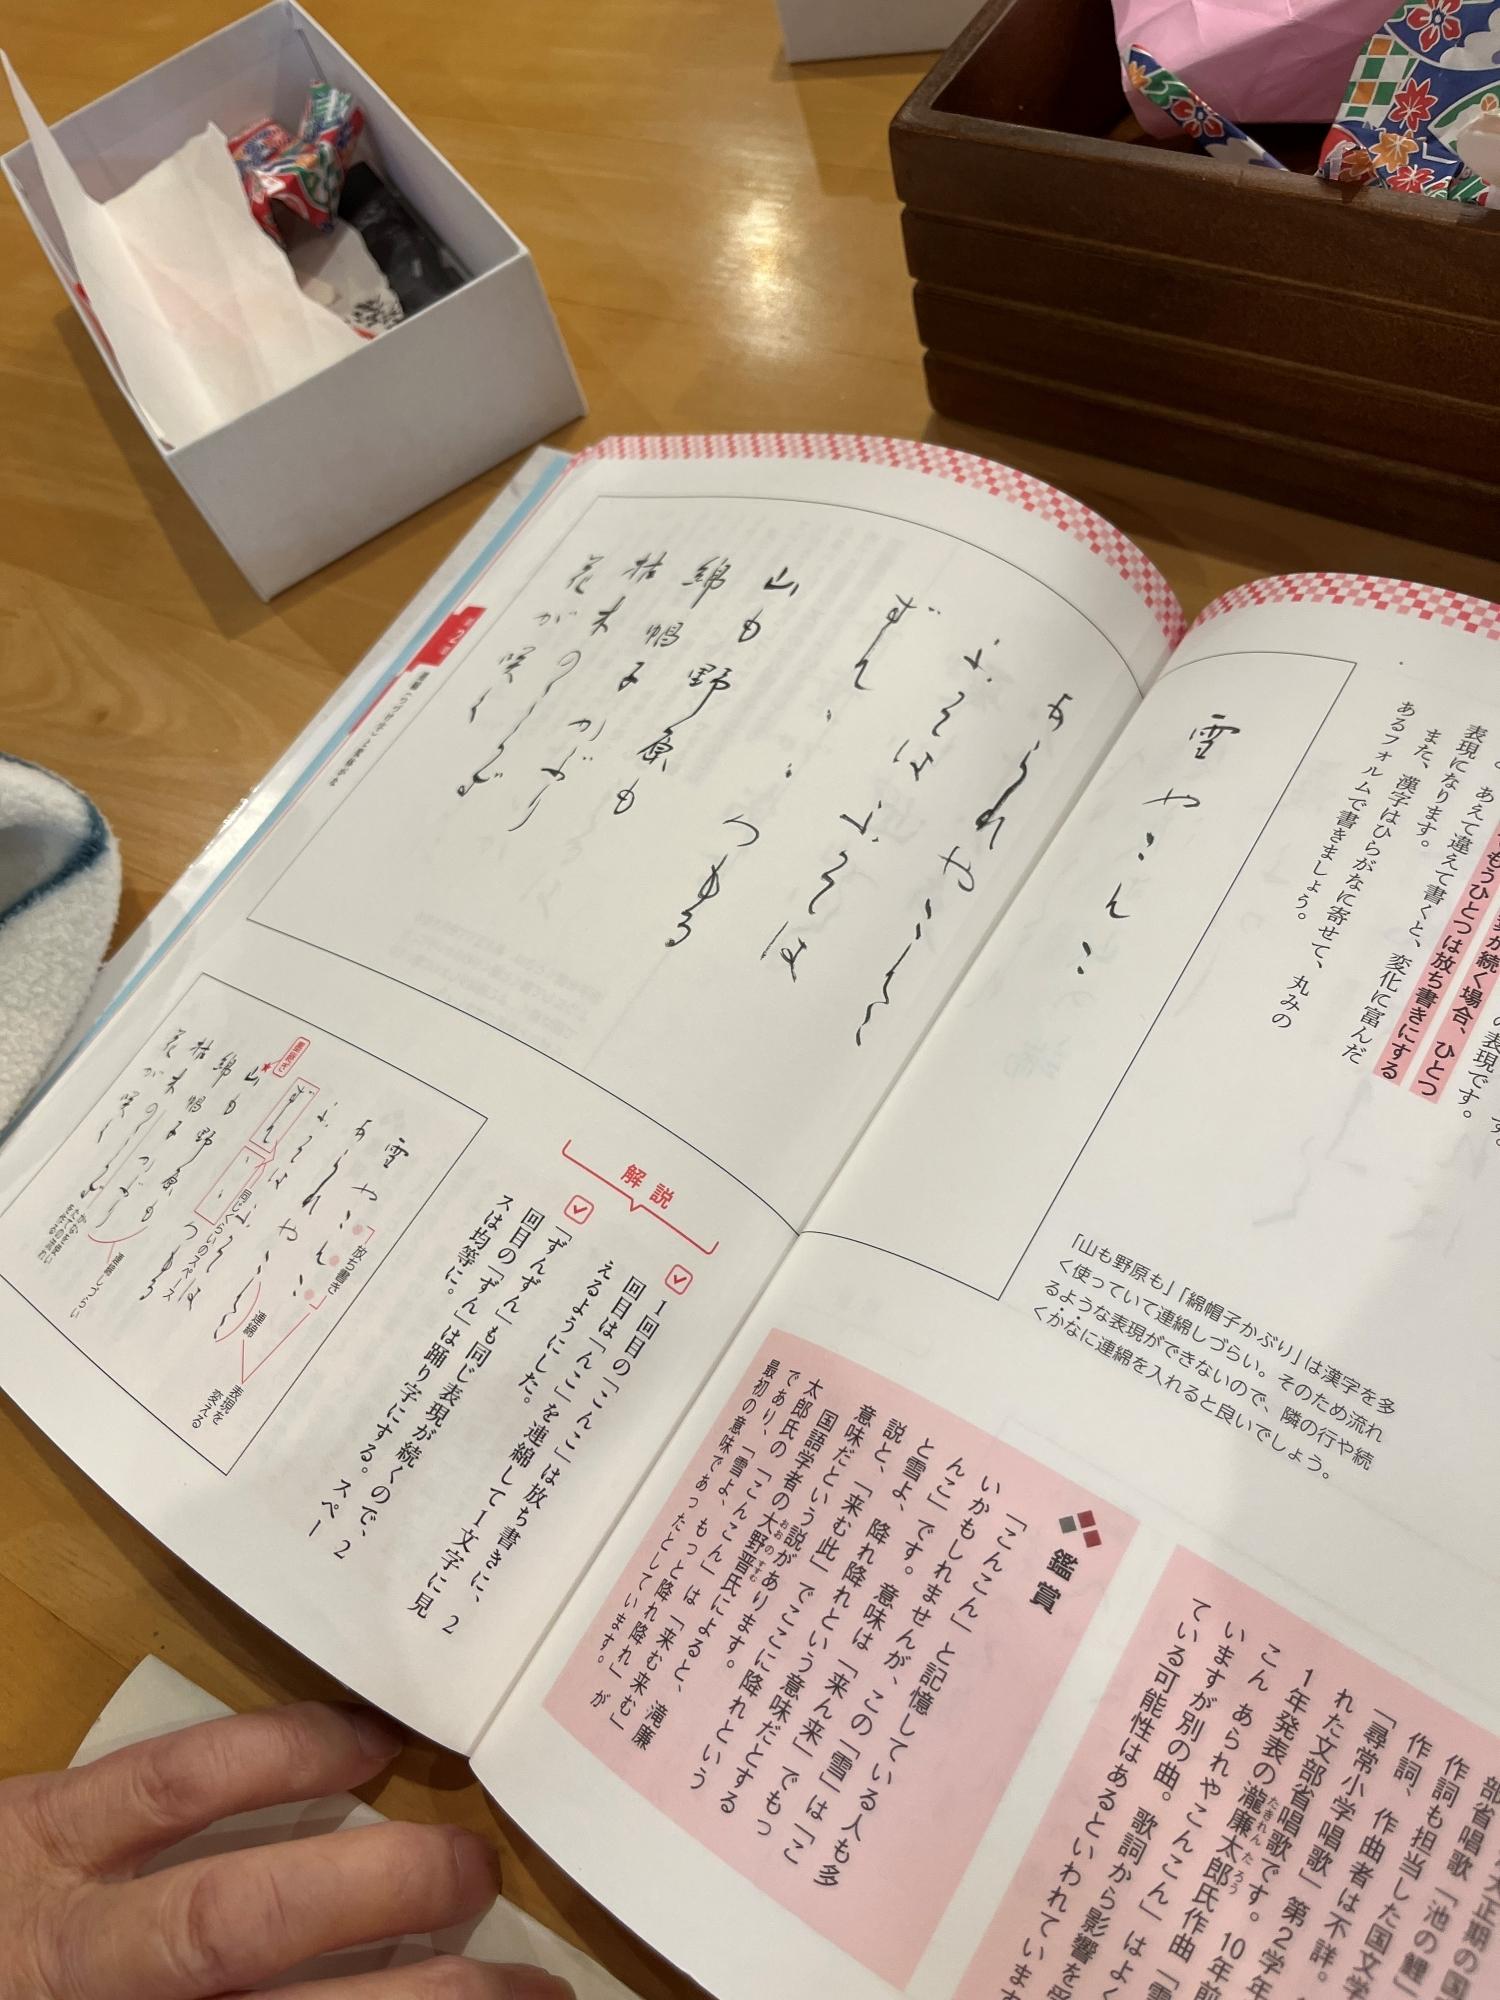 が続く場合、ひとつ
もうひとつは放ち書きにする
の表現です。
あえて違えて書くと、変化に富んだ
表現になります。
また、漢字はひらがなに寄せて、丸みの
あるフォルムで書きましょう。
雪やこんこ
あられやこんこ
ふつてはふつては
ずんずんつもる
山も野原も
綿帽子かぶり
枯木のこらず
花が咲く
「山も野原も」「綿帽子かぶり」は漢字を多
く使っていて連綿しづらい。そのため流れ
るような表現ができないので、隣の行や続
くかなに連綿を入れると良いでしょう。
作詞も担当した国文学
作詞、作曲者は不詳。
「尋常小学唱歌」第2学年
れた文部省唱歌です。10年前
1年発表の瀧廉太郎氏作曲「雪
こん あられやこんこん」はよく
いますが別の曲。歌詞から影響を受
ている可能性はあるといわれています
鑑賞
「こんこん」と記憶している人も多
いかもしれませんが、この「雪」は「こ
んこ」です。意味は「来ん来」でもっ
と雪よ、降れ降れという意味だとする
説と、「来む此」でここに降れという
意味だという説があります。
国語学者の大野晋氏によると、滝廉
太郎氏の「こんこん」は「来む来む」
であり、「雪よ、もっと降れ降れ」が
最初の意味であったとしています。
解説
1回目の「こんこ」は放ち書きに、2
回目は「んこ」を連綿して1文字に見
えるようにした。
「ずんずん」も同じ表現が続くので、2
回目の「ずん」は踊り字にする。スペー
スは均等に。
雪やこんこ
あられやこんこ
ふつてはふつては
ずんずんつもる
山も野原も
綿帽子かぶり
枯木のこらず
花が咲く
放ち書き
連綿
表現を
変える
墨継ぎ
同じくらいのスペース
連綿しづらい